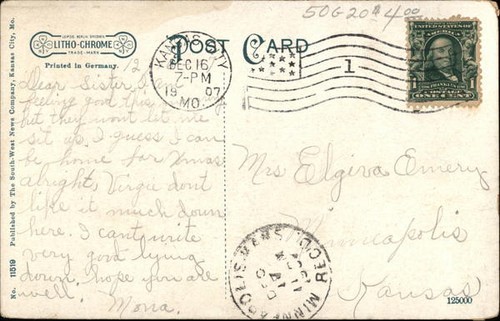 50G20# 4.00
LEIPZIG BERLIN DRESDEN
LITHO-CHROME
TRADE-MARK
Printed in Germany.
POST CARD
KANSAS CITY
DEC 16
7-PM
1907
MO.
1
1 ONE CENT 1
12
Dear Sister,
feeling good this
but they wont let me
sit up. I guess I can
be home for Xmas
alright, Virgie dont
like it much down
here. I cant write
very good lying
down. hope you are
well. Mona.
Mrs Elgiva Emery
Minneapolis
Kansas
MINNEAPOLIS KANS. REC'D
DEC
17
1907
No. 11519 Published by The South-West News Company, Kansas City, Mo.
125000